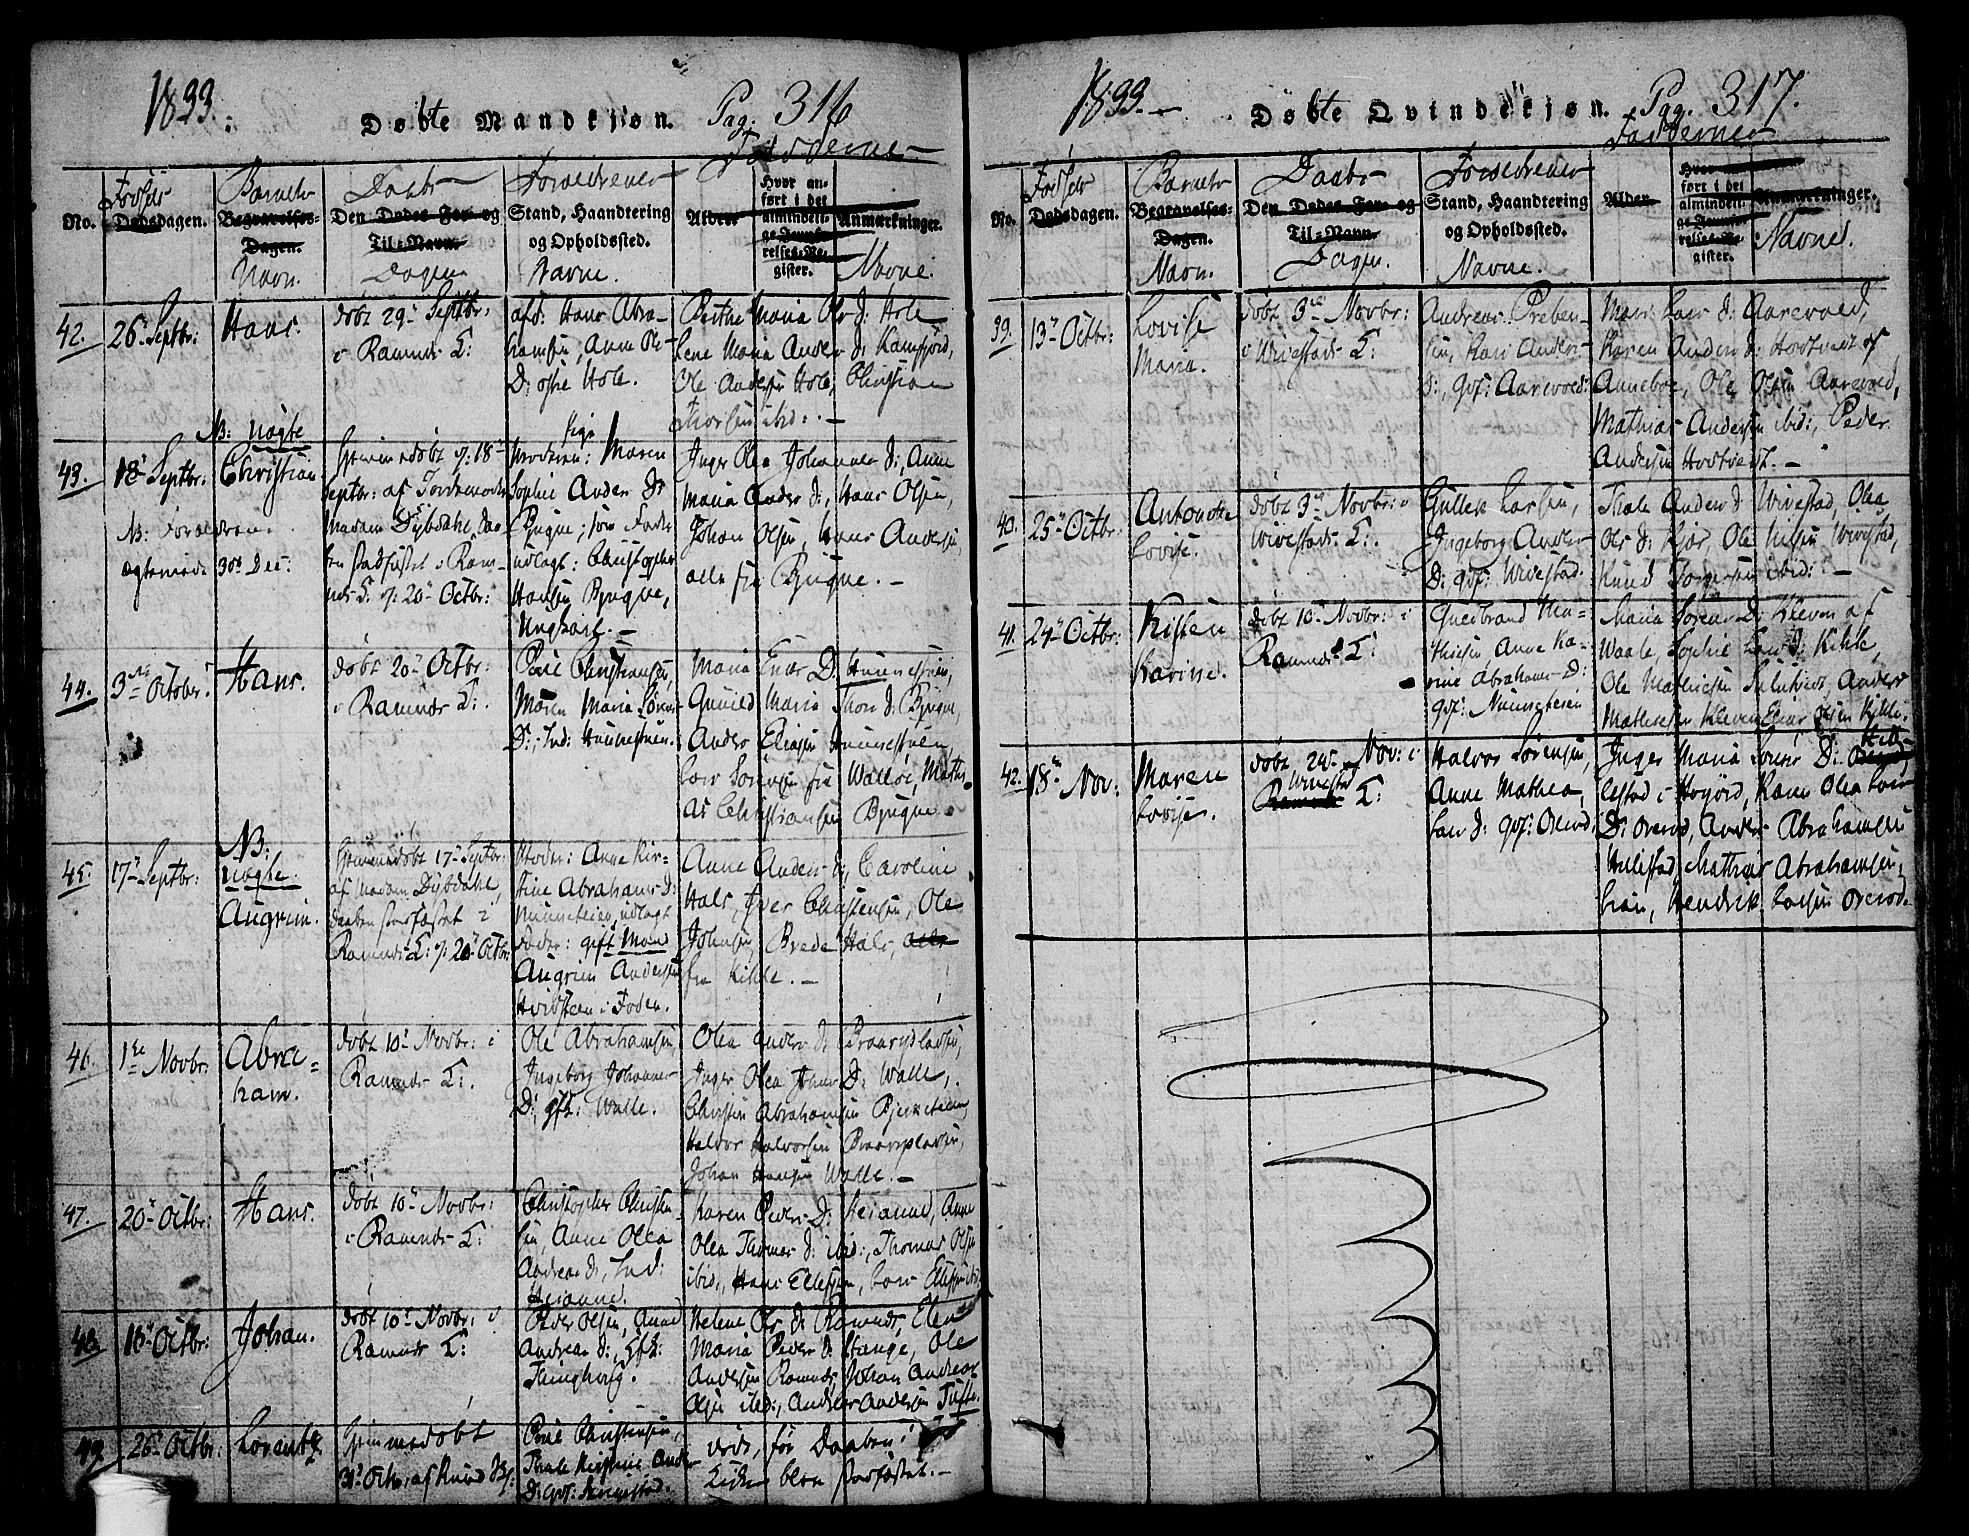 1833.
Döbte Mandkjön. Pag. 316
Fadderne
No.
Födsels
Dødsdagen.
Barnets
Begravelses-
Dagen.
Navn.
Daabs
Den Dødes For- og
Til-Navn.
Dagen
Forældrenes
Stand, Haandtering
og Opholdssted.
Navne.
Alder
Hvor an-
ført i det
alminden-
ge Jevnfø-
relses-Re-
gister.
Anmærkninger.
Navne.
42. 26. Septbr: Hans.
döbt 29. Septbr:
i Ramnes K:
afd: Hans Abra-
hamsen, Anne Ols
D: Hole.
Berthe Maria Ols D: Hole
Lene Maria Anders D: Kamfjord,
Ole Andersen Hole, Christian
Thorsen ibid: -
NB: uægte
43. 18. Septbr: Christian
NB: Forældrene
ægteviede 30 Dec:
Hjemmedöbt d: 18
Septbr: af Jordemoder
Madam Dybdahl, Daa-
ben stadfæstet i Ram-
nes K: d: 20. Octbr:
Moderen: Maren
Sophie Anders D:
Bjugne; som Fader
udlagt: Christopher
Hansen Bjugne,
Ungkarl. -
Inger Olea Johannes D:, Anne
Maria Anders D:, Hans Olsen,
Johan Olsen, Hans Andersen,
alle fra Bjugne. -
44. 3die October. Hans.
döbt 20. Octbr:
i Ramnes K:
Poul Christiansen,
Maren Maria Sörens
D:, Ind: Hunnestuen.
Maria Enars D: Hunnestuen,
Gunild Maria Thors D: Bjugne,
Anders Eliasen Hunnestuen,
Lars Sörensen fra Wallöe, Mathi-
as Christiansen Bjugne.
NB:
uægte.
45. 17. Septbr: Augrim.
Hjemmedöbt 17. Septbr:
af Madam Dybdahl,
Daaben stadfæstet i
Ramnes K: d: 20. Octbr:
Moder: Anne Kir-
stine Abrahams D:
udlagt
Fader: gift Mand
Augrim Andersen
Hvidsteen i Foden.
Anne Anders D:, Caroline
Hals, Iver Christensen, Ole
Johnsen, Brede Hals, alle
fra Kihle. -
46. 1ste Novbr: Abra-
ham.
döbt 10. Novbr: i
Ramnes K:
Ole Abrahamsen,
Ingeborg Johannes
D:, gft: Walle.
Olea Anders D:
Inger Olea Johns D: Walle,
Christen Abrahamsen
Halvor Halvorsen
Johan Hansen Walle. -
47. 20. Octbr: Hans.
döbt 10. Novbr:
i Ramnes K:
Christopher Christen-
sen, Anne Olea
Andreas D:, Ind:
Karen Peders D: Anne
Olea Thomas D: ibid:, Thomas Olsen
ibid:, Hans Ellefsen, Lars
48. 18. Octbr: Johan.
döbt 10. Novbr: i
Ramnes K:
Peder Olsen, Anne
Andreas D:, Gft:
Helene Ols D: Ramnes, Elen
Maria Peders D: Stange, Ole
Andersen Ramnes, Johan Andreas
Olsen ibid:, Andreas Andersen Tufte.
49. 26. Octbr: Lorentz.
Hjemmedöbt
31. Octbr: af Knud
Poul Christensen,
Thale Kirstine Anders
D: gift:
döde, för Daaben i
Kirken blev stadfæstet. -
1833. -
Döbte Qvindekjön. Pag. 317.
Fadderne
No.
Födsels
Dødsdagen.
Barnets
Begravelses-
Dagen.
Navn.
Daabs
Den Dødes For- og
Til-Navn.
Dagen.
Forældrenes
Stand, Haandtering
og Opholdssted.
Navne.
Alder
Hvor an-
ført i det
alminden-
ge Jevnfø-
relses-Re-
gister.
Anmærkninger.
Navne.
39. 13. Octbr: Lovise
Maria.
döbt 3die Novbr:
i Wivestads K:
Andreas Preben-
sen, Kari Anders
D:, gft: Aarevold.
Mari Lars D: Aarevold,
Karen Anders D: Hostvedt af
Anneboe, Ole Olsen Aarevold,
Mathias Andersen ibid:, Peder
Andersen Hostvedt. -
40. 25. Octbr: Antonette
Lovise.
döbt 3die Novbr: i
Wivestads K:
Gullek Larsen,
Ingeborg Anders
D: gft: Wivestad.
Thale Anders D: Wivestad, Olea
Ols D: Kjær, Ole Nilsen Wivestad,
Knud Torgersen ibid: -
41. 24. Octbr: Kisten
Karine.
döbt 10. Novbr: i
Ramnes K:
Guldbrand Ma-
thisen, Anne Ka-
rine Abrahams D:
gft:
Maria Sörens D: Kleven af
Waale, Sophie Lars D: Kihle,
Ole Mathiesen Anders
Mathiesen Kleven, Enar Olsen Kihle.
42. 18. Nov: Maren
Lovise.
döbt 24. Nov: i
Wivestad
Ramnes K:
Halvor Sörensen,
Anne Mathea
Lars D: gft: Oterod.
Inger Maria Sörens D: Hille-
stad i Höjord, Karen Olea Lars
D: Oterod, Anders Abrahamsen
Hillestad, Mathias Abrahamsen
Hendrik Larsen Oterod.